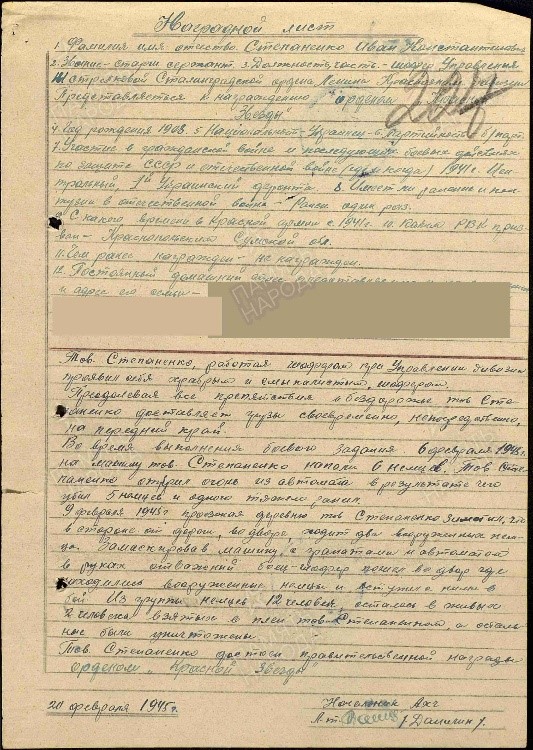 Наградной лист
1. Фамилия имя отчество. Степаненко Иван Константинович
2. Звание - старш. сержант. 3. Должность, часть. - шофер Управления
стрелковой Сталинградской ордена Ленина Краснознам. дивизии
Представляется к награждению орденом „
Звезды"
4. Год рождения 1908. 5 Национальность - Украинец - 6. Партийность б/парт.
7. Участие в гражданской войне и последующих боевых действиях
по защите СССР и отечественной войне (где, когда) 1941г. Цен-
тральный, 1й Украинский фронта. 8. Имеет ли ранение и кон-
тузии в отечественной войне - Ранен один раз.
9. С какого времени в Красной армии с 1941г. 10. Каким РВК приз-
ван - Краснопольским Сумской обл.
11. Чем ранее награжден - не награжден.
12. Постоянный домашний адрес
и адрес его семьи -
Тов. Степаненко, работая шофером при Управлении дивизии
проявил себя храбрым и смекалистым, шофером.
Преодолевая все препятствия и бездорожье тов Сте
паненко доставляет грузы своевременно, непосредственно,
на передний край.
Во время выполнения боевого задания 6 февраля 1945г.
на машину тов. Степаненко напали 6 немцев. Тов Сте
паненко открыл огонь из автомата в результате чего
убил 5 немцев и одного тяжело ранил.
9 февраля 1945г проезжая деревню тов Степаненко заметил, что
в стороне от дороги, во дворе, ходит два вооруженных нем-
ца. Замаскировав машину, с гранатами и автоматом
в руках отважный боец-шофер пошел во двор где
находились вооруженные немцы и вступил с ними в
бой. Из группы немцев 12 человек, осталось в живых
2 человека взятые в плен тов. Степаненко, а осталь-
ные были уничтожены.
Тов. Степаненко достоин правительственной награды
орденом „Красной Звезды"
20 февраля 1945г.
Начальник Ахч
/ Данилин /.